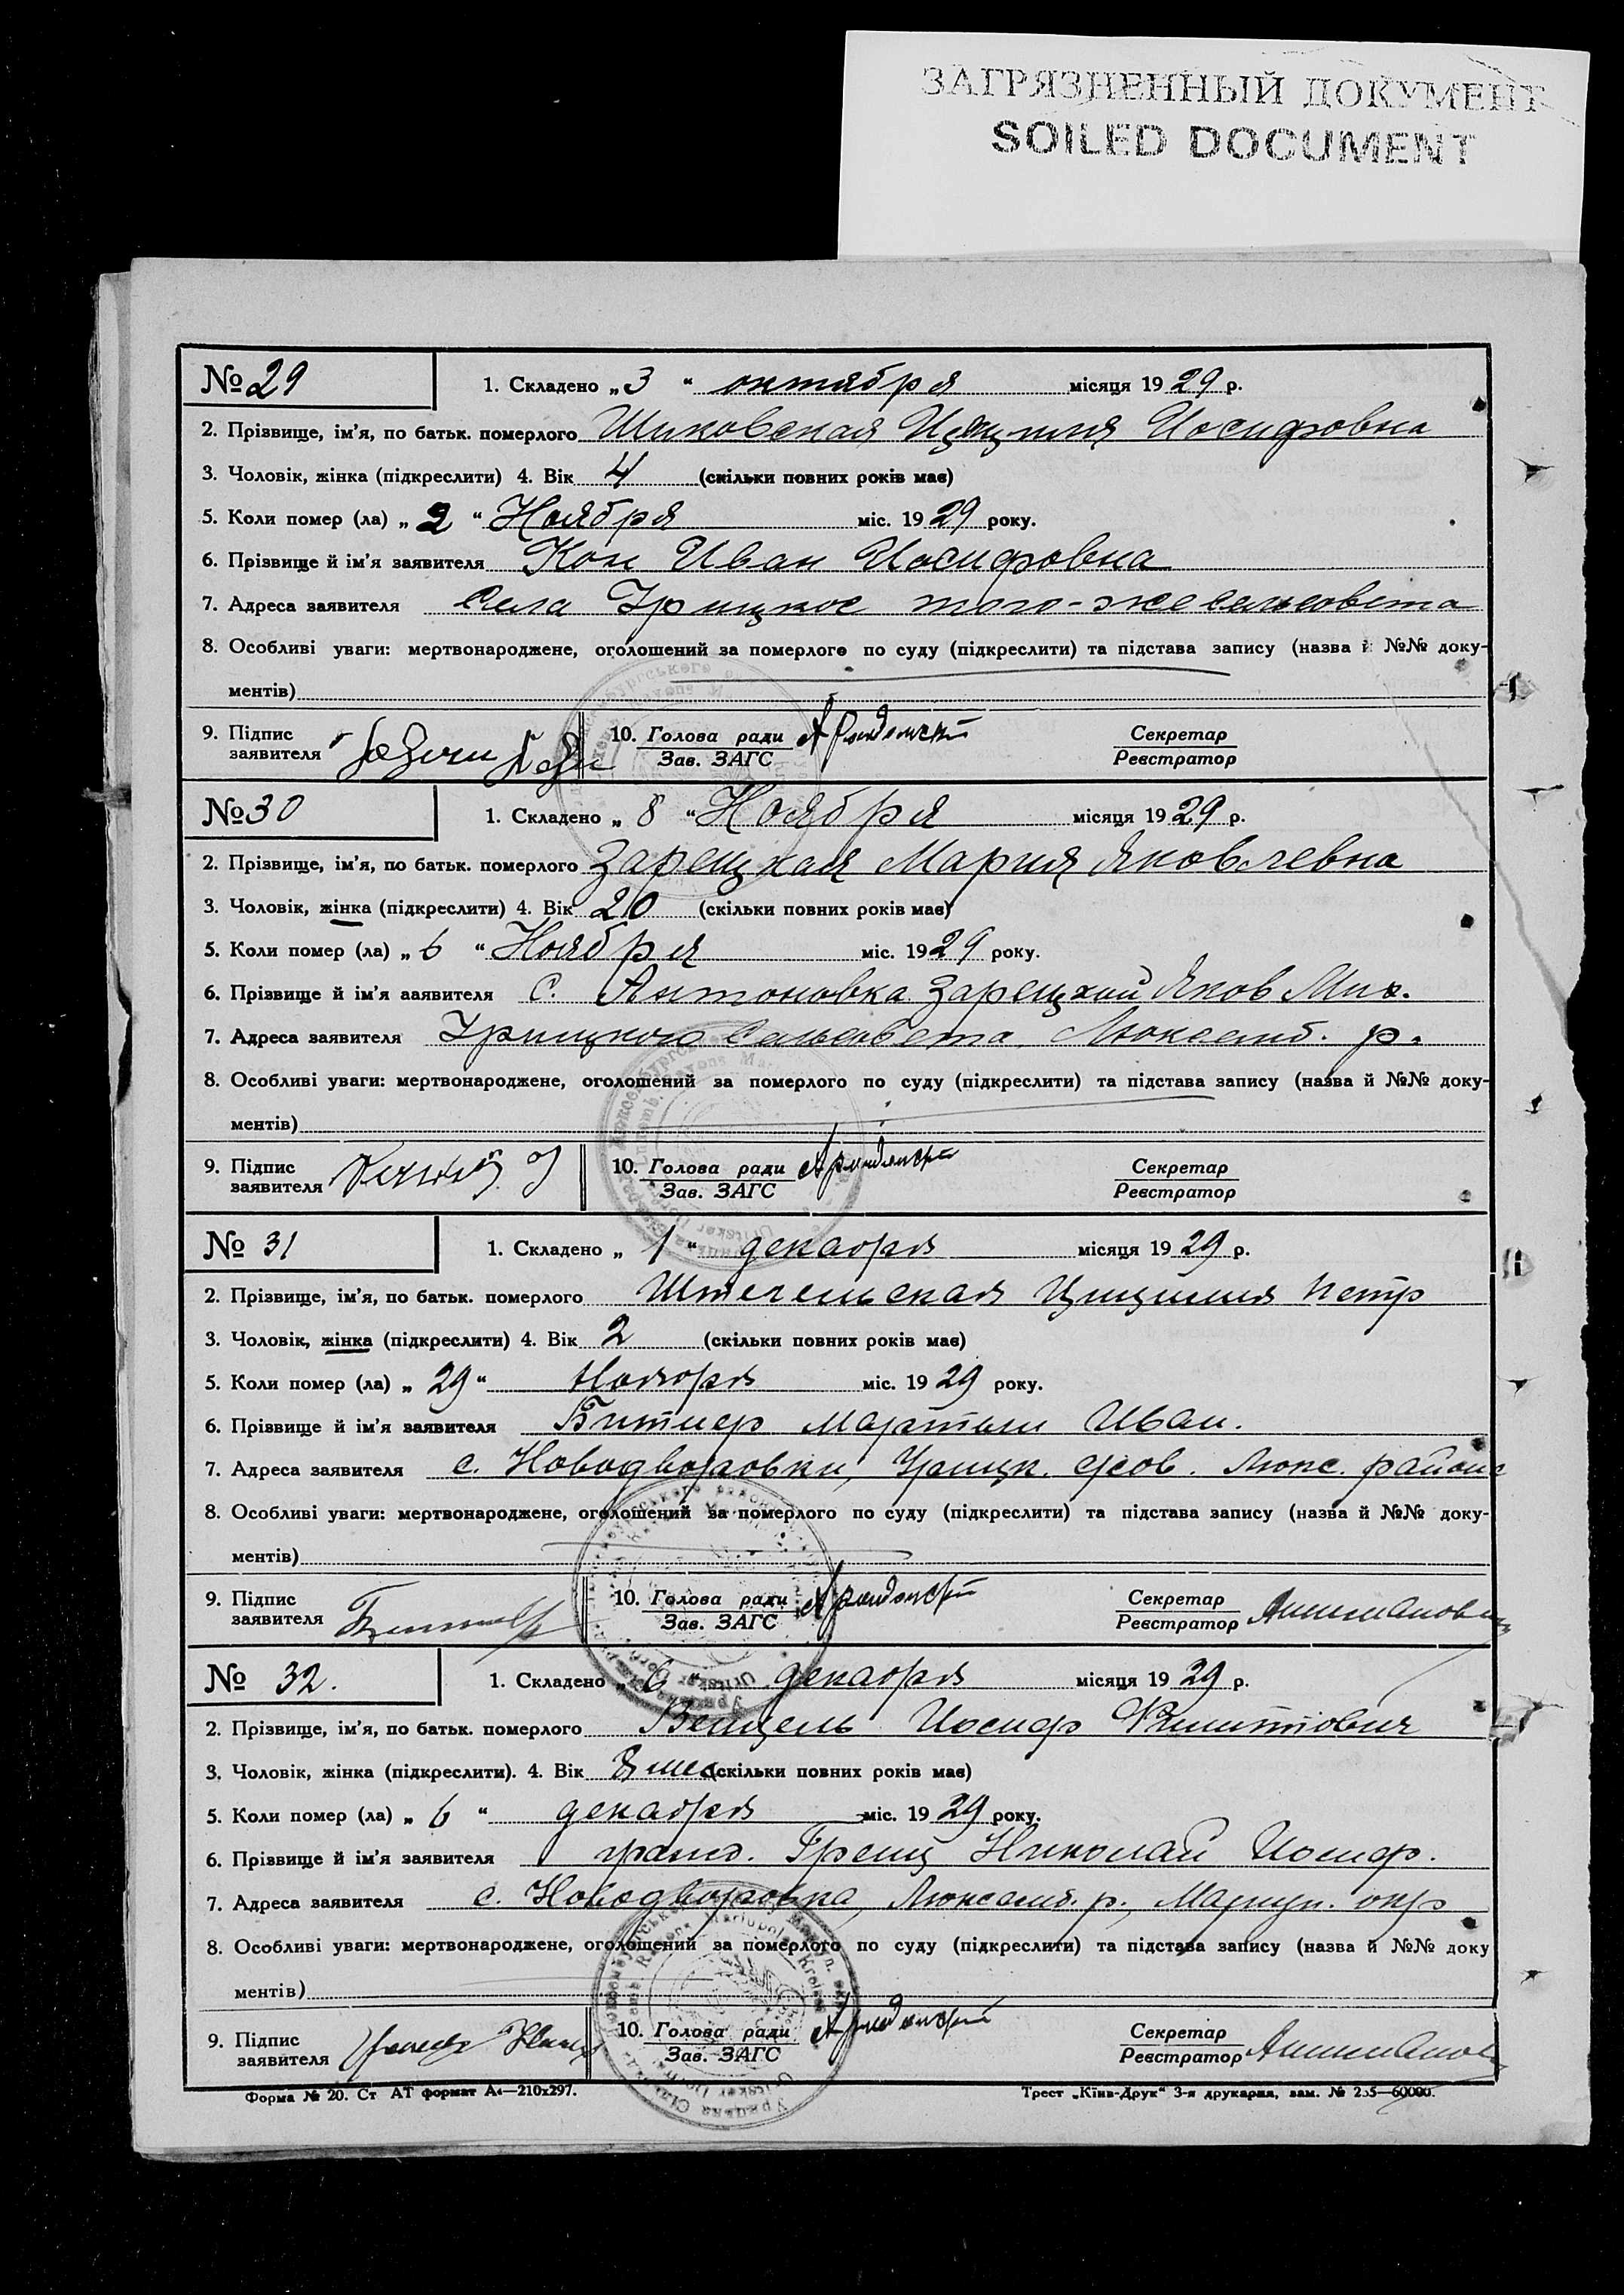 ЗАГРЯЗНЕННЫЙ ДОКУМЕНТ
SOILED DOCUMENT
№ 29
1. Складено „ 3 “ октября місяця 1929 р.
2. Прізвище, ім'я, по батьк. померлого Шиковская Иосифовна
3. Чоловік, жінка (підкреслити) 4. Вік 4 (скільки повних років має)
5. Коли помер (ла) „ 2 “ Ноября міс. 1929 року.
6. Прізвище й ім'я заявителя Кон Иван Иосифовна
7. Адреса заявителя Села Урицкое того-же сельсовета
8. Особливі уваги: мертвонароджене, оголошений за померлого по суду (підкреслити) та підстава запису (назва й №№ доку-
ментів)
9. Підпис заявителя
10. Голова ради
Зав. ЗАГС
Секретар
Реєстратор
№ 30
1. Складено „ 8 “ Ноября місяця 1929 р.
2. Прізвище, ім'я, по батьк. померлого Зарецкая Мария Яковлевна
3. Чоловік, жінка (підкреслити) 4. Вік 20 (скільки повних років має)
5. Коли помер (ла) „ 6 “ Ноября міс. 1929 року.
6. Прізвище й ім'я ааявителя с. Антоновка Зарецкий Яков Мих.
7. Адреса заявителя Урицкого Сельсовета Люксемб. р.
8. Особливі уваги: мертвонароджене, оголошений за померлого по суду (підкреслити) та підстава запису (назва й №№ доку-
ментів)
9. Підпис заявителя
10. Голова ради
Зав. ЗАГС
Секретар
Реєстратор
№ 31
1. Складено „ 1 “ декабря місяця 1929 р.
2. Прізвище, ім'я, по батьк. померлого Петр
3. Чоловік, жінка (підкреслити) 4. Вік 2 (скільки повних років має)
5. Коли помер (ла) „ 29 “ Ноября міс. 1929 року.
6. Прізвище й ім'я заявителя Битнер Мартын Иван.
7. Адреса заявителя с. Новодворовки, Урицк. Люкс. района
8. Особливі уваги: мертвонароджене, оголошений за померлого по суду (підкреслити) та підстава запису (назва й №№ доку-
ментів)
9. Підпис заявителя
10. Голова ради
Зав. ЗАГС
Секретар
Реєстратор
№ 32.
1. Складено „ 6 “ декабря місяця 1929 р.
2. Прізвище, ім'я, по батьк. померлого Венцель Иосиф
3. Чоловік, жінка (підкреслити). 4. Вік 8 мес (скільки повних років має)
5. Коли помер (ла) „ 6 “ декабря міс. 1929 року.
6. Прізвище й ім'я заявителя Николай Иосиф.
7. Адреса заявителя с. Новодворовка, Люксемб. р., Мариуп. окр
8. Особливі уваги: мертвонароджене, оголошений за померлого по суду (підкреслити) та підстава запису (назва й №№ доку
ментів)
9. Підпис заявителя
10. Голова ради
Зав. ЗАГС
Секретар
Реєстратор
Форма № 20. Ст АТ формат А4—210х297.
Трест „Київ-Друк“ 3-я друкарня, зам. № 235—60000.